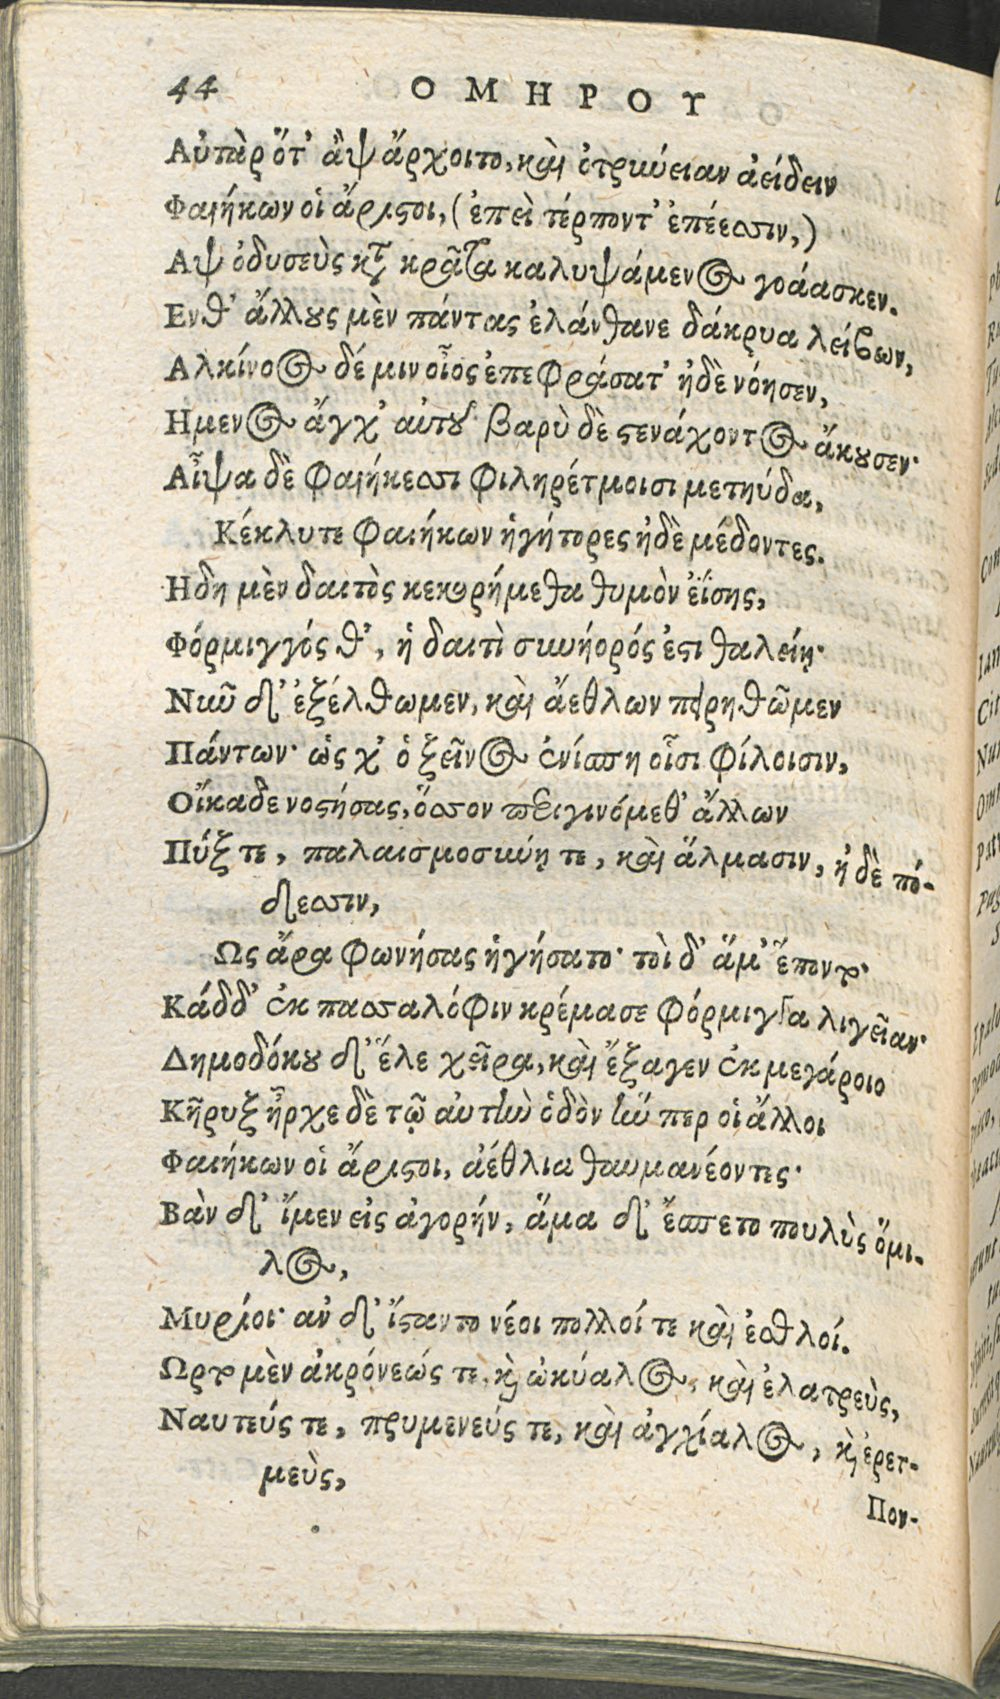 44 ΟΜΗΡΟΥ
Αὐτὰρ ὅτ' ἂψ ἄρχοιτο, καὶ ὀτρύνειαν ἀείδειν
Φαιήκων οἱ ἄριστοι, (ἐπεὶ τέρποντ' ἐπέεσσιν,)
Αψ ὀδυσεὺς κατὰ κρᾶτα καλυψάμενος γοάασκεν.
Ενθ' ἄλλους μὲν πάντας ἐλάνθανε δάκρυα λείβων,
Αλκίνοος δέ μιν οἶος ἐπεφράσατ' ἠδὲ νόησεν,
Ημενος ἄγχ' αὐτοῦ· βαρὺ δὲ στενάχοντος ἄκουσεν·
Αἶψα δὲ Φαιήκεσσι φιληρέτμοισι μετηύδα,
Κέκλυτε Φαιήκων ἡγήτορες ἠδὲ μέδοντες.
Ηδη μὲν δαιτὸς κεκορήμεθα θυμὸν ἐΐσης,
Φόρμιγγός θ', ἡ δαιτὶ συνήορός ἐστι θαλείῃ·
Νῦν δ' ἐξέλθωμεν, καὶ ἄεθλων πειρηθῶμεν
Πάντων· ὥς χ' ὁ ξεῖνος ἐνίσπῃ οἷσι φίλοισιν,
Οἴκαδε νοστήσας, ὅσσον περιγινόμεθ' ἄλλων
Πύξ τε, παλαισμοσύνῃ τε, καὶ ἅλμασιν, ἠδὲ πό-
δεσσιν,
Ως ἄρα φωνήσας ἡγήσατο· τοὶ δ' ἅμ' ἕποντο·
Κάδδ' ἐκ πασσαλόφιν κρέμασε φόρμιγγα λιγεῖαν·
Δημοδόκου δ' ἕλε χεῖρα, καὶ ἔξαγεν ἐκ μεγάροιο
Κῆρυξ ἦρχε δὲ τῷ αὐτὴν ὁδὸν ἥν περ οἱ ἄλλοι
Φαιήκων οἱ ἄριστοι, ἀέθλια θαυμανέοντες·
Βὰν δ' ἴμεν εἰς ἀγορήν, ἅμα δ' ἕσπετο πουλὺς ὅμι-
λος,
Μυρίοι· αν δ' ἵσταντο νέοι πολλοί τε καὶ ἐσθλοί.
Ωρτο μὲν ἀκρόνεώς τε, καὶ ὠκύαλος, καὶ ἐλατρεὺς,
Ναυτεύς τε, πρυμενεύς τε, καὶ ἀγχίαλος, καὶ ἐρετ-
μεὺς,
Πον-